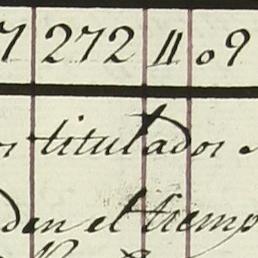 7 272 11 09
titulados
den el tiempo